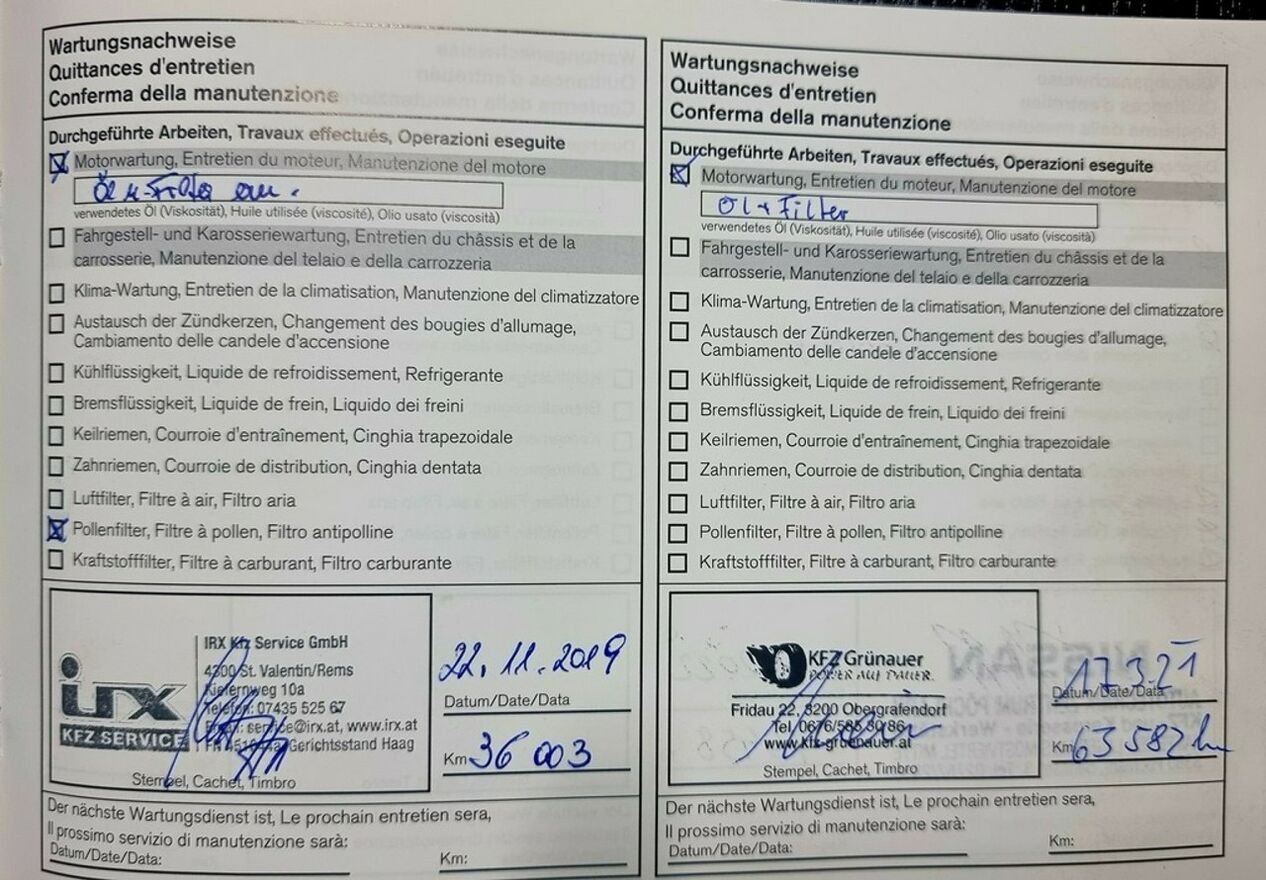 Wartungsnachweise
Quittances d'entretien
Conferma della manutenzione
Durchgeführte Arbeiten, Travaux effectués, Operazioni eseguite
Motorwartung, Entretien du moteur, Manutenzione del motore
Öl u-Filter
verwendetes Öl (Viskosität), Huile utilisée (viscosité), Olio usato (viscosità)
Fahrgestell- und Karosseriewartung, Entretien du châssis et de la
carrosserie, Manutenzione del telaio e della carrozzeria
Klima-Wartung, Entretien de la climatisation, Manutenzione del climatizzatore
Austausch der Zündkerzen, Changement des bougies d'allumage,
Cambiamento delle candele d'accensione
Kühlflüssigkeit, Liquide de refroidissement, Refrigerante
Bremsflüssigkeit, Liquide de frein, Liquido dei freini
Keilriemen, Courroie d'entraînement, Cinghia trapezoidale
Zahnriemen, Courroie de distribution, Cinghia dentata
Luftfilter, Filtre à air, Filtro aria
Pollenfilter, Filtre à pollen, Filtro antipolline
Kraftstofffilter, Filtre à carburant, Filtro carburante
irx
KFZ SERVICE
IRX Kfz Service GmbH
4300 St. Valentin/Rems
Kiefernweg 10a
Telefon: 07435 525 67
Email: service@irx.at, www.irx.at
Gerichtsstand Haag
Stempel, Cachet, Timbro
22.11.2019
Datum/Date/Data
Km 36 003
Der nächste Wartungsdienst ist, Le prochain entretien sera,
Il prossimo servizio di manutenzione sarà:
Datum/Date/Data:
Km:
Wartungsnachweise
Quittances d'entretien
Conferma della manutenzione
Durchgeführte Arbeiten, Travaux effectués, Operazioni eseguite
Motorwartung, Entretien du moteur, Manutenzione del motore
Öl + Filter
verwendetes Öl (Viskosität), Huile utilisée (viscosité), Olio usato (viscosità)
Fahrgestell- und Karosseriewartung, Entretien du châssis et de la
carrosserie, Manutenzione del telaio e della carrozzeria
Klima-Wartung, Entretien de la climatisation, Manutenzione del climatizzatore
Austausch der Zündkerzen, Changement des bougies d'allumage,
Cambiamento delle candele d'accensione
Kühlflüssigkeit, Liquide de refroidissement, Refrigerante
Bremsflüssigkeit, Liquide de frein, Liquido dei freini
Keilriemen, Courroie d'entraînement, Cinghia trapezoidale
Zahnriemen, Courroie de distribution, Cinghia dentata
Luftfilter, Filtre à air, Filtro aria
Pollenfilter, Filtre à pollen, Filtro antipolline
Kraftstofffilter, Filtre à carburant, Filtro carburante
KFZ Grünauer
POWER AUF DAUER.
Fridau 22, 3200 Obergrafendorf
Tel: 0676/585 30 86
www.kfz-gruenauer.at
Stempel, Cachet, Timbro
17.3.21
Datum/Date/Data
Km 63582 km
Der nächste Wartungsdienst ist, Le prochain entretien sera,
Il prossimo servizio di manutenzione sarà:
Datum/Date/Data:
Km: